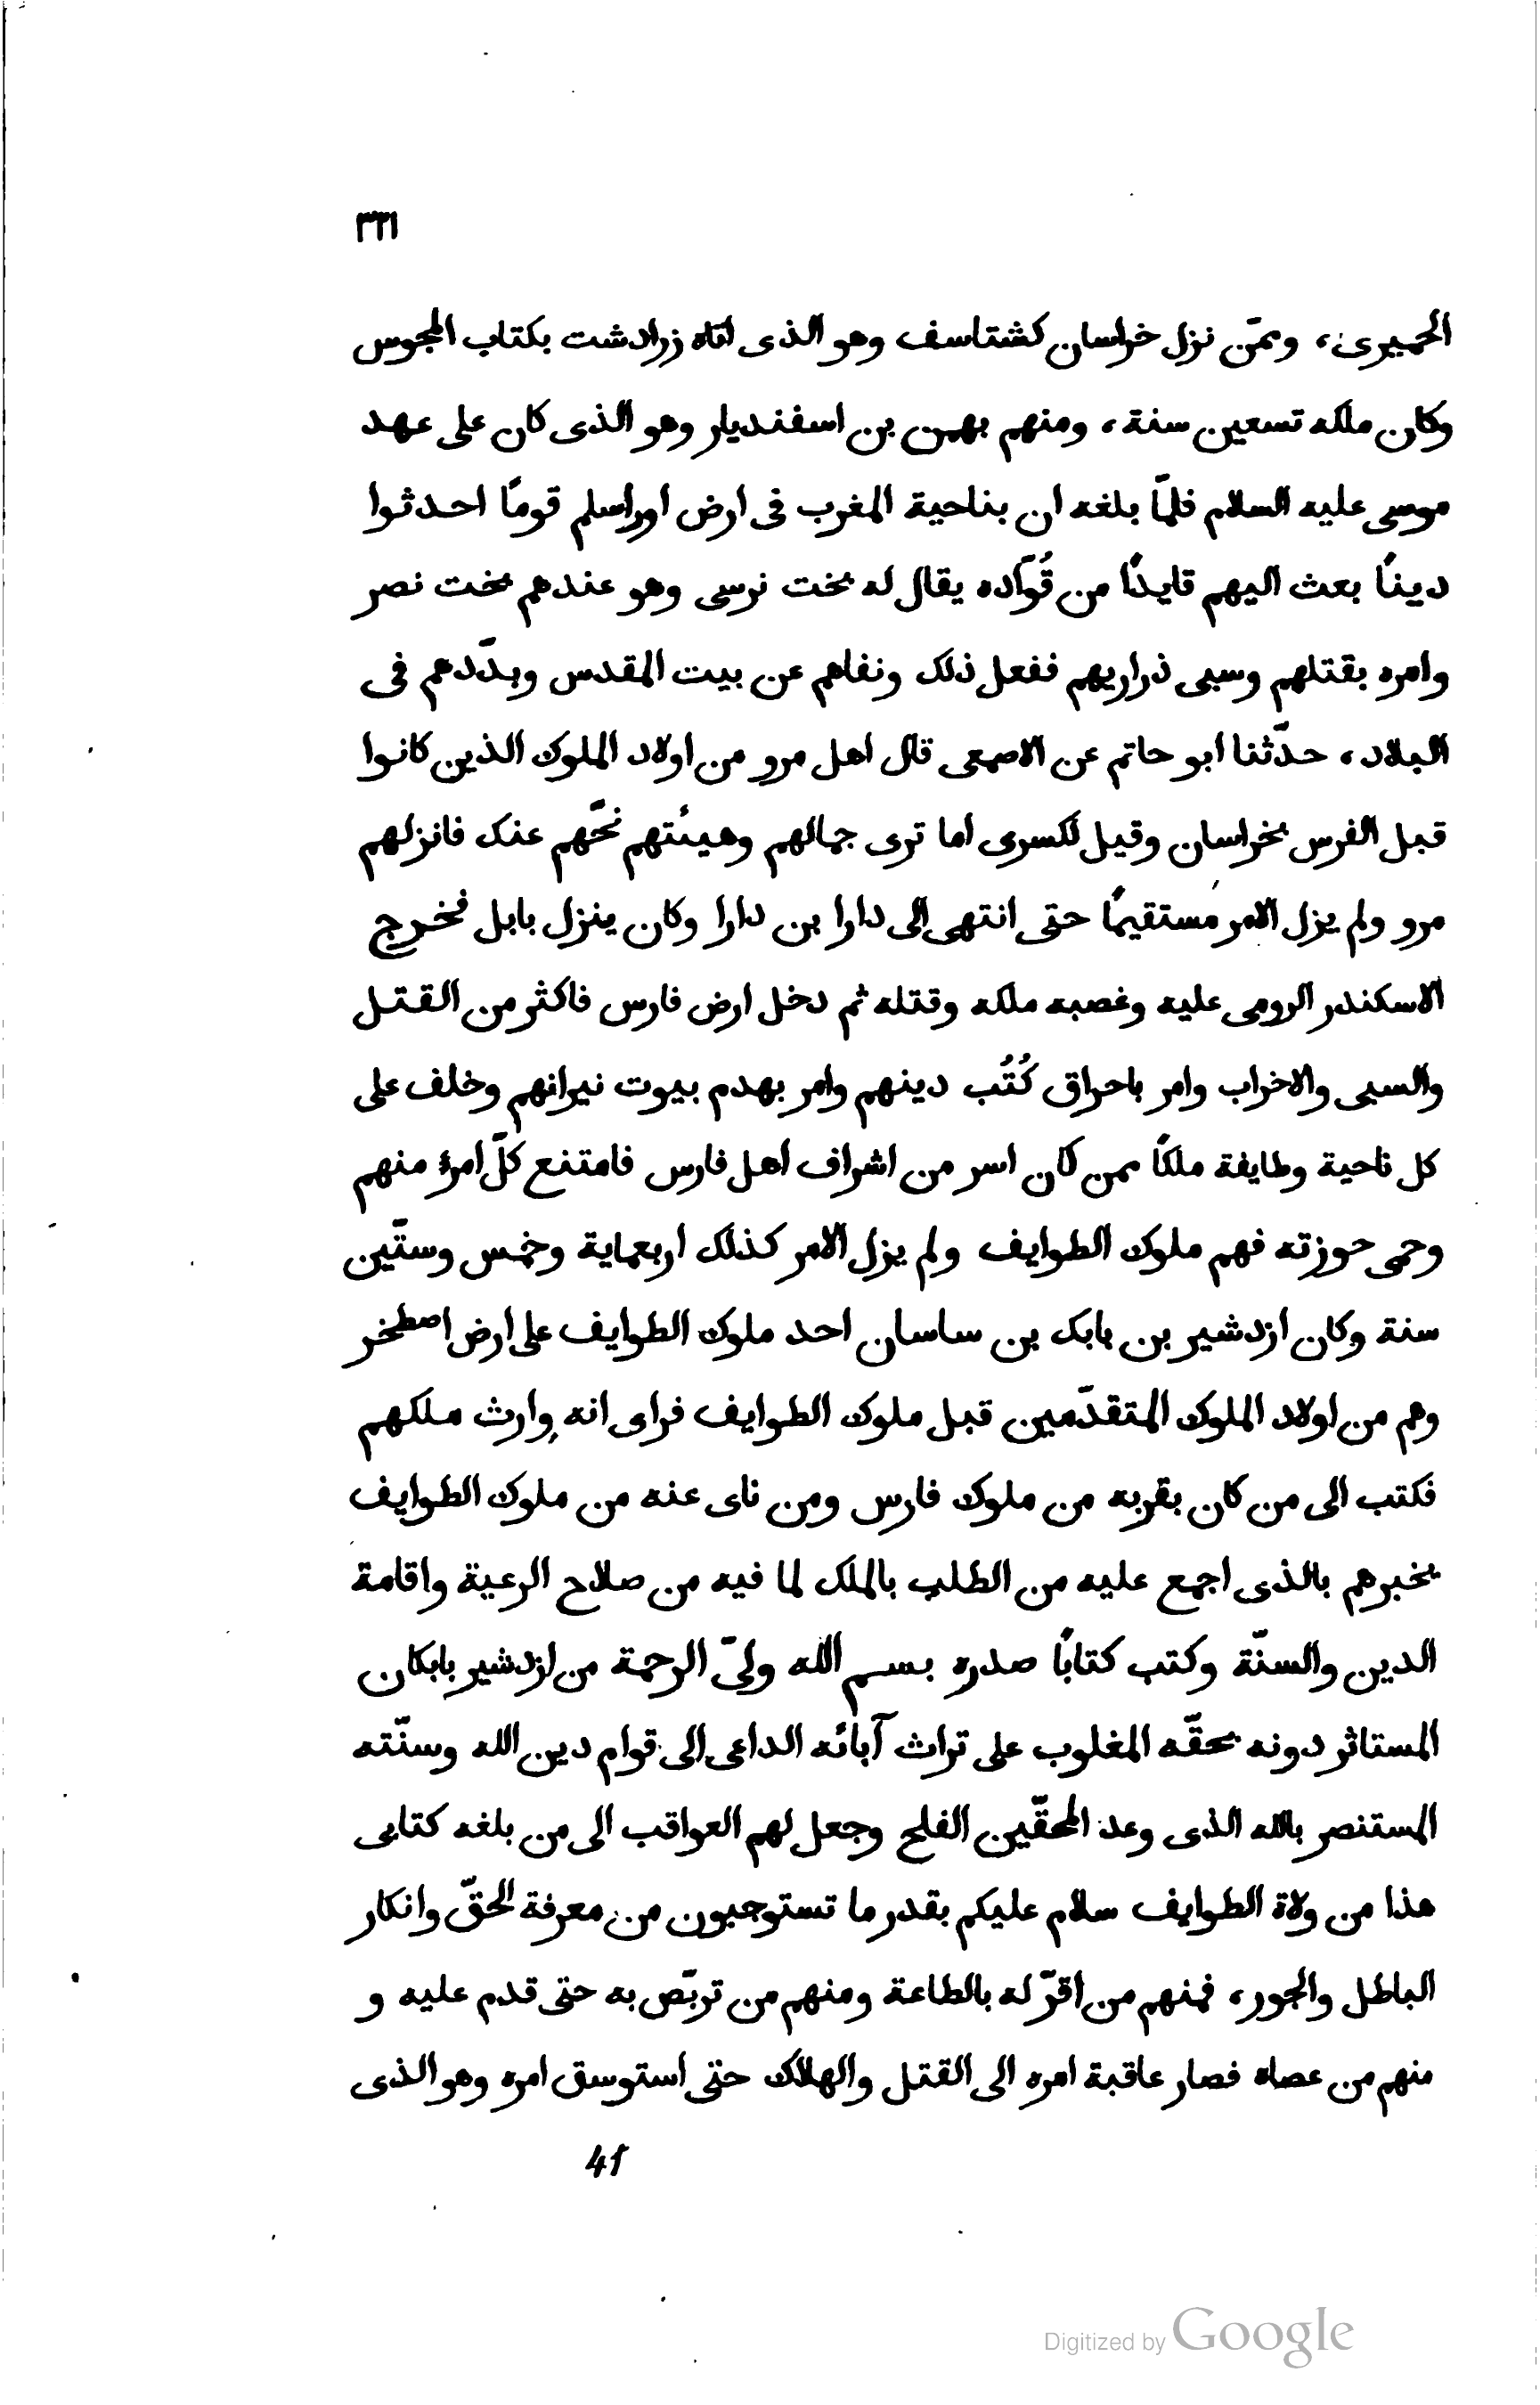 ٣٢١
الحميرى، وممّن نزل خراسان كشتاسف وهو الذى اتاه زرادشت بكتاب المجوس
وكان ملكه تسعين سنة، ومنهم بهمن بن اسفنديار وهو الذى كان على عهد
موسى عليه السلام فلمّا بلغه ان بناحية المغرب فى ارض اوراسلم قومًا احدثوا
دينًا بعث اليهم قايدًا من قُوّاده يقال له بخت نرسى وهو عندهم بخت نصر
وامره بقتلهم وسبى ذراريهم ففعل ذلك ونفاهم عن بيت المقدس وبدّدهم فى
البلاد، حدّثنا ابو حاتم عن الاصمعى قال اهل مرو من اولاد الملوك الذين كانوا
قبل الفرس بخراسان وقيل لكسرى اما ترى جمالهم وهيئتهم نحّهم عنك فانزلهم
مرو ولم يزل الامر مستقيمًا حتى انتهى الى دارا بن دارا وكان ينزل بابل فخرج
الاسكندر الرومى عليه وغصبه ملكه وقتله ثم دخل ارض فارس فاكثر من القتل
والسبى والاخراب وامر باحراق كُتُب دينهم وامر بهدم بيوت نيرانهم وخلف على
كل ناحية وطايفة ملكًا ممن كان اسر من اشراف اهل فارس فامتنع كلّ امرؤ منهم
وحمى حوزته فهم ملوك الطوايف ولم يزل الامر كذلك اربعماية وخمس وستّين
سنة وكان ازدشير بن بابك بن ساسان احد ملوك الطوايف على ارض اصطخر
وهم من اولاد الملوك المتقدّمين قبل ملوك الطوايف فراى انه وارث ملكهم
فكتب الى من كان بقربه من ملوك فارس ومن ناى عنه من ملوك الطوايف
يخبرهم بالذى اجمع عليه من الطلب بالملك لما فيه من صلاح الرعية واقامة
الدين والسنّة وكتب كتابًا صدره بسم الله ولىّ الرحمة من ازدشير بابكان
المستاثر دونه بحقّه المغلوب على تراث آبائه الداعى الى قوام دين الله وسنّته
المستنصر بالله الذى وعد المحقّين الفلح وجعل لهم العواقب الى من بلغه كتابى
هذا من ولاة الطوايف سلام عليكم بقدر ما تستوجبون من معرفة الحقّ وانكار
الباطل والجور، فمنهم من اقرّ له بالطاعة ومنهم من تربّص به حتى قدم عليه و
منهم من عصاه فصار عاقبة امره الى القتل والهلاك حتى استوسق امره وهو الذى
41
Digitized by Google